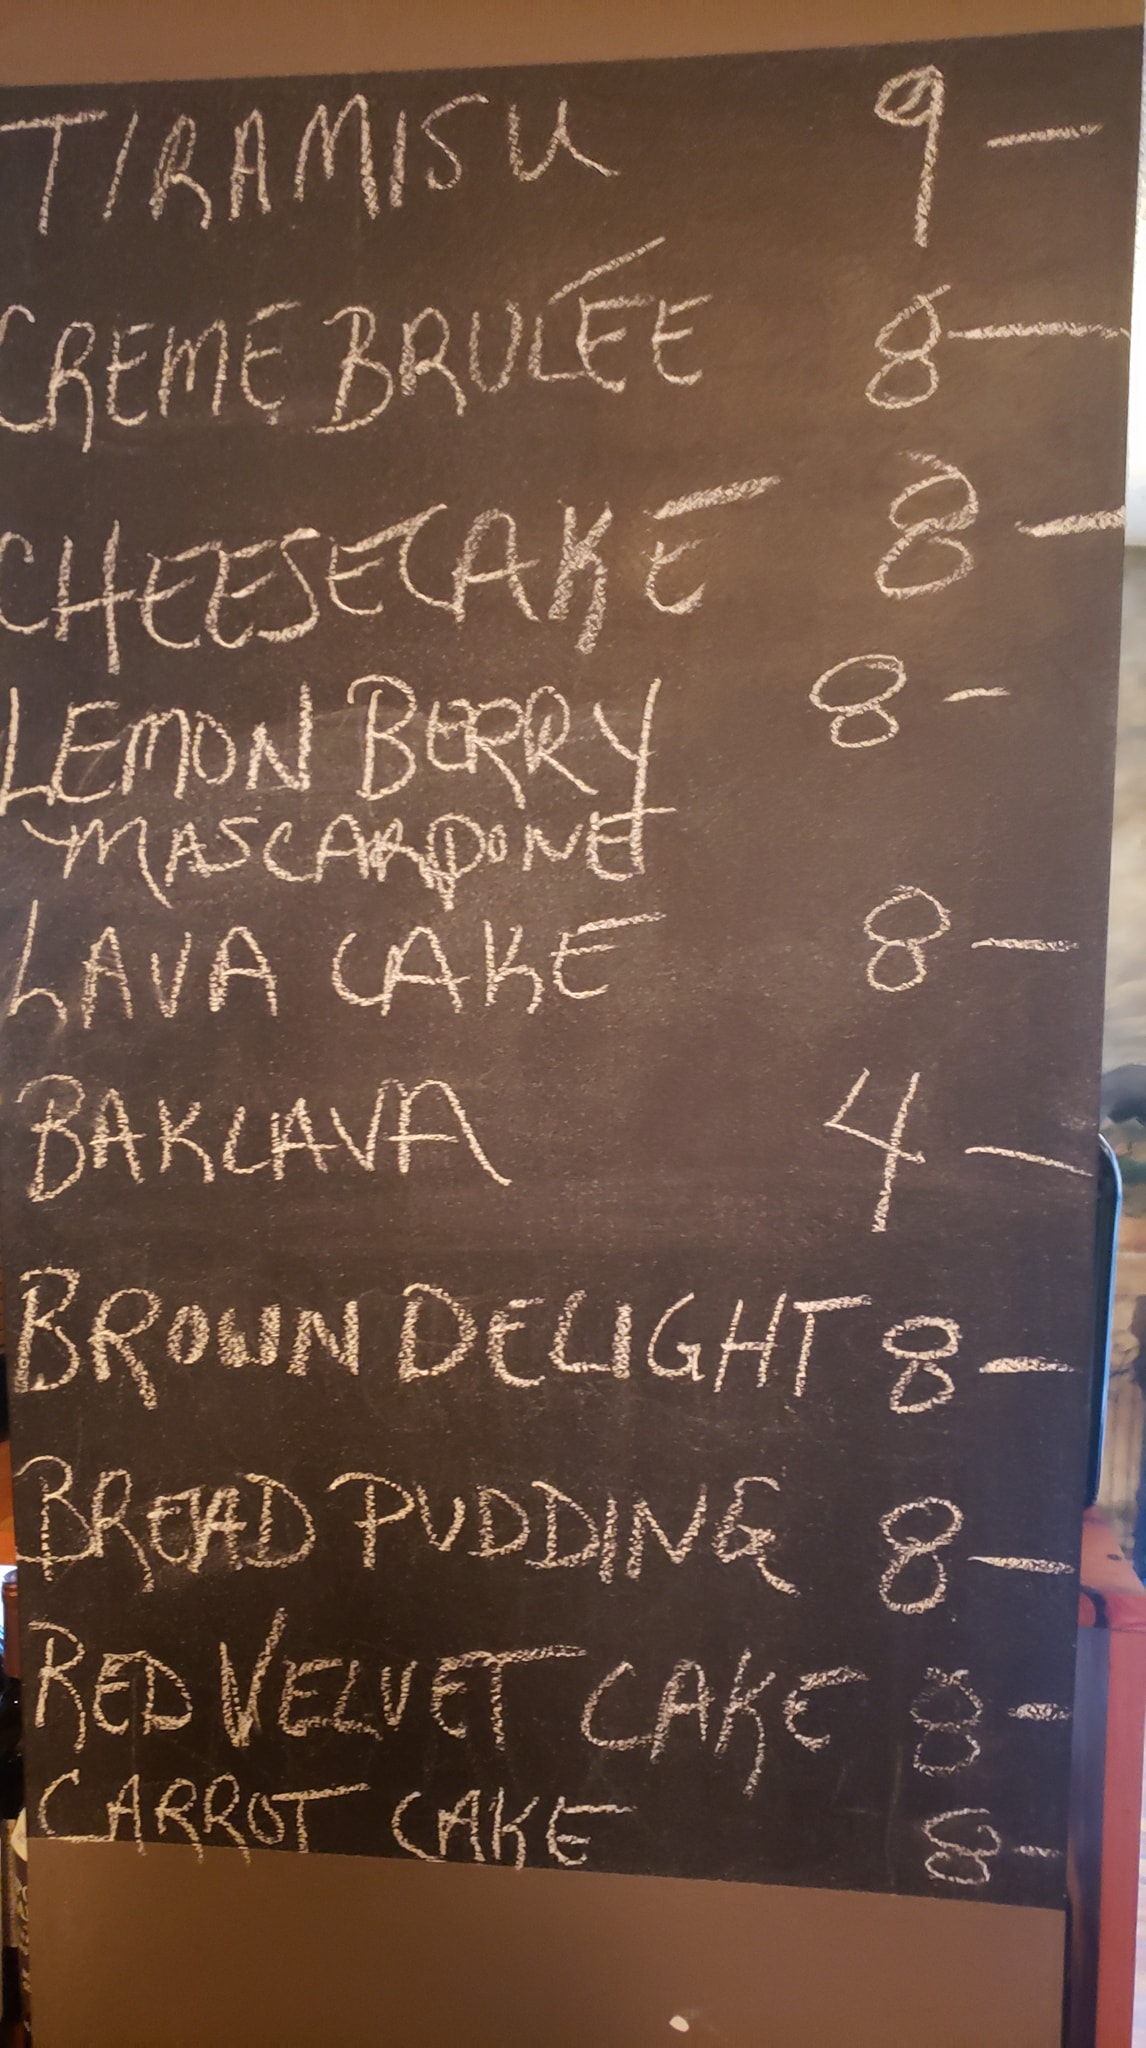 TIRAMISU 9 —
CREME BRULÉE 8 —
CHEESECAKE 8 —
LEMON BERRY 8 -
MASCARPONE
LAVA CAKE 8 —
BAKLAVA 4 —
BROWN DELIGHT 8 —
BREAD PUDDING 8 —
RED VELVET CAKE 8 -
CARROT CAKE 8 -